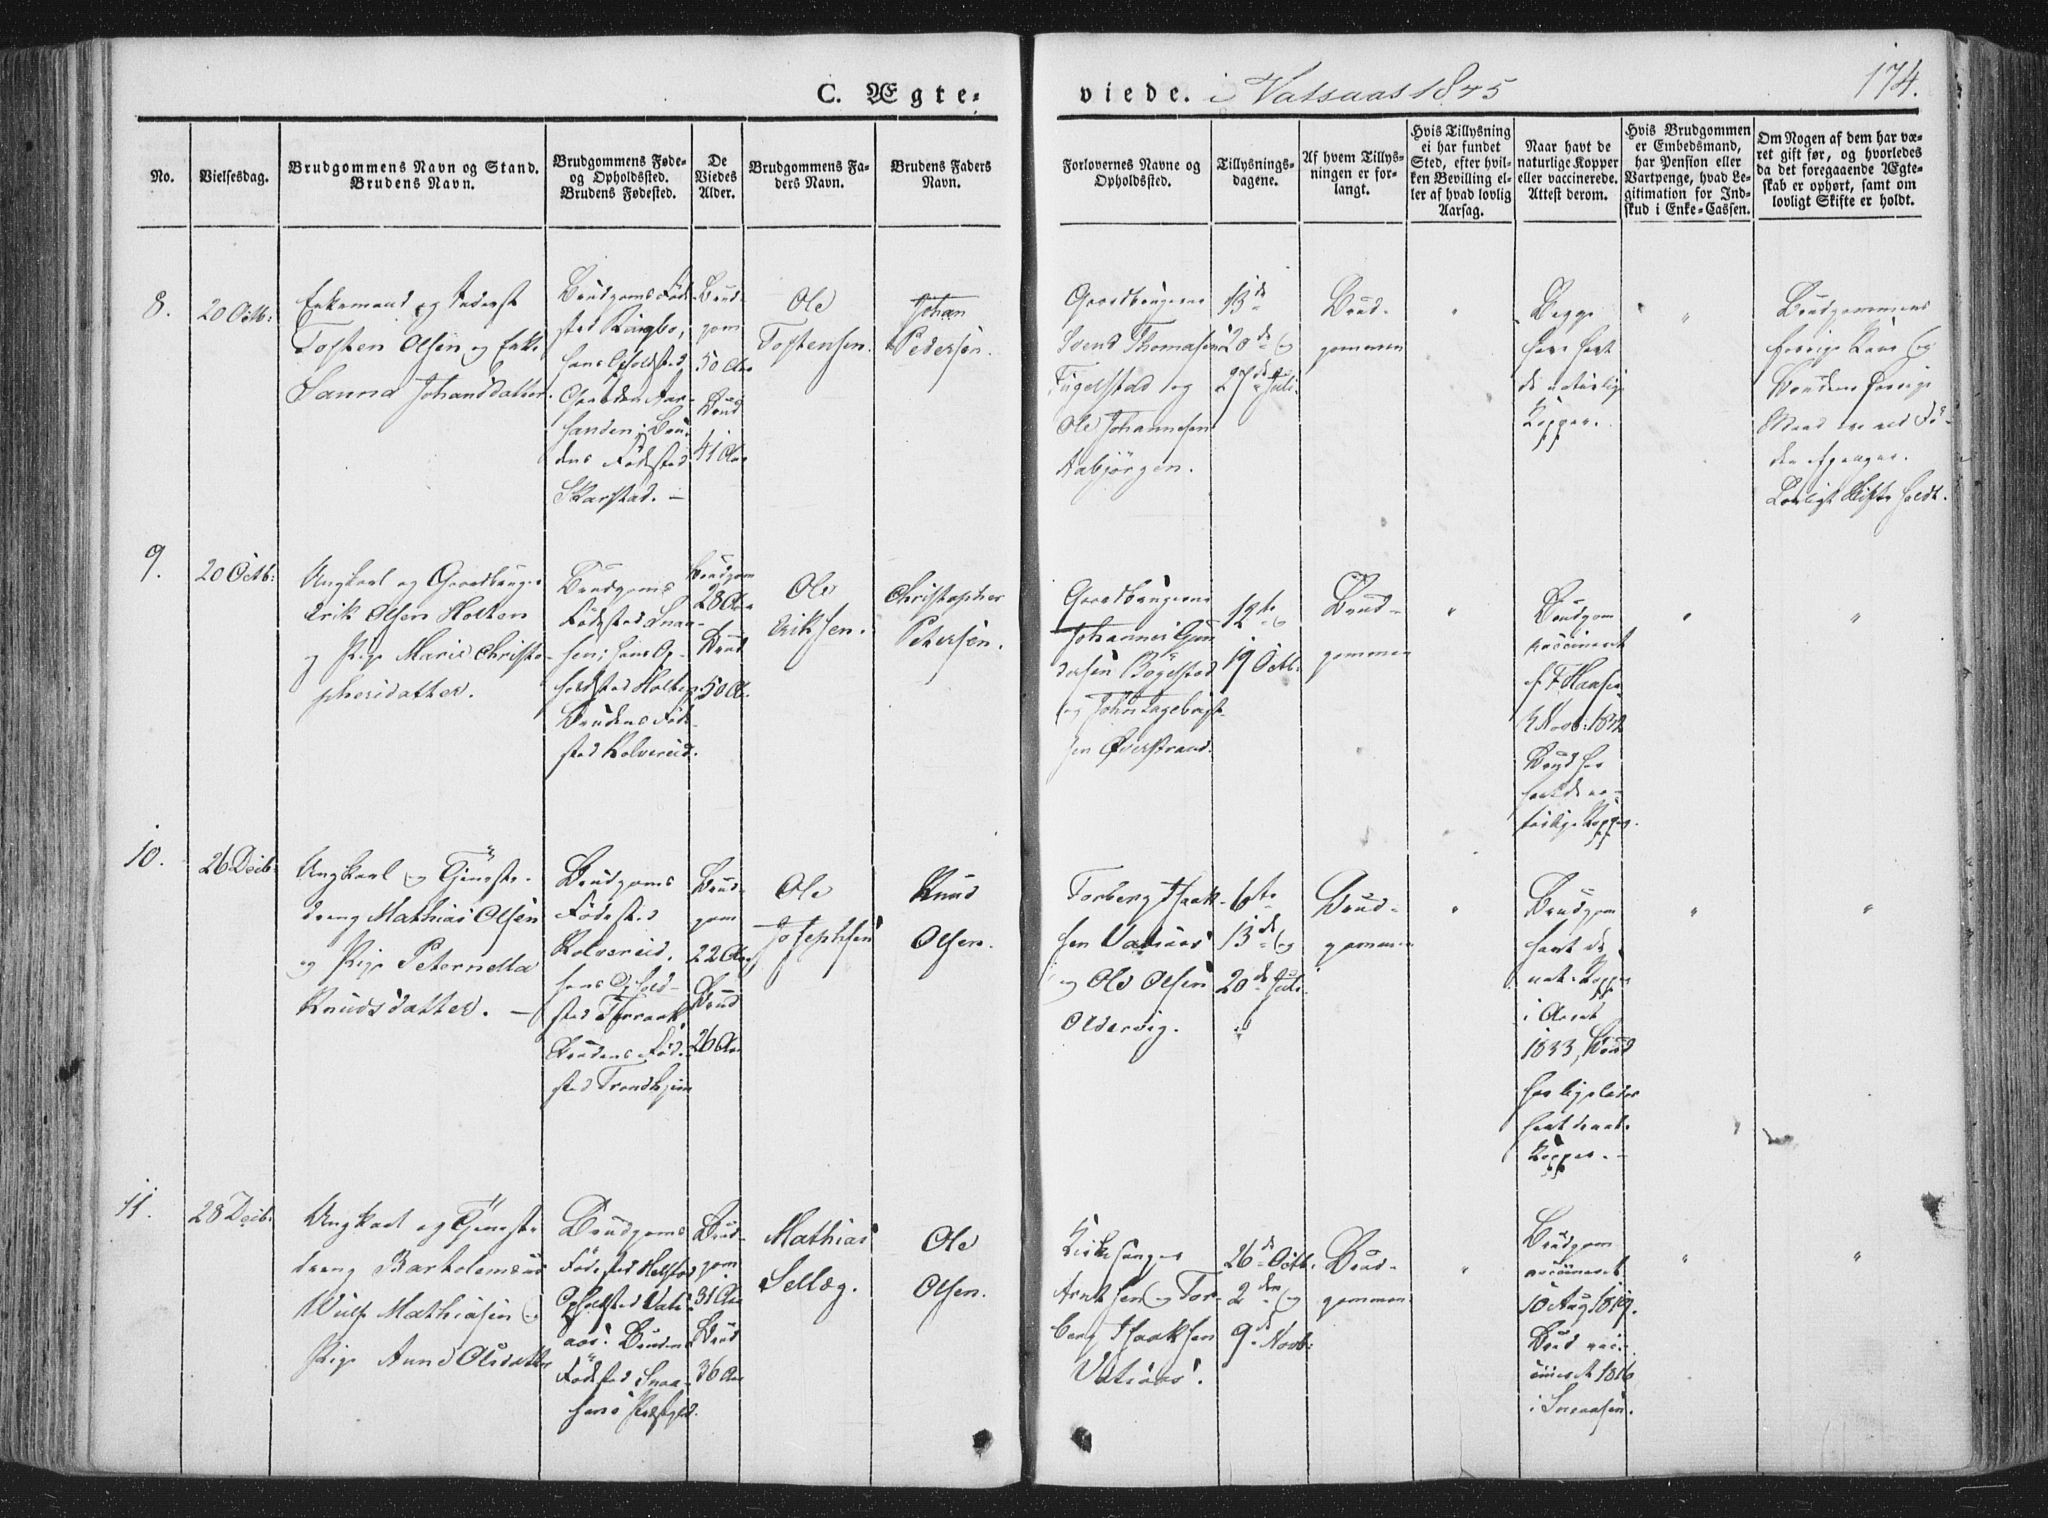 C. Ægte-
viede. i Vatsaas 1845
174.
No.
Vielsesdag.
Brudgommens Navn og Stand.
Brudens Navn.
Brudgommens Føde-
og Opholdssted.
Brudens Fødested.
De
Viedes
Alder.
Brudgommens Fa-
ders Navn.
Brudens Faders
Navn.
Forlovernes Navne og
Opholdssted.
Tillysnings-
dagene.
Af hvem Tillys-
ningen er for-
langt.
Hvis Tillysning
ei har fundet
Sted, efter hvil-
ken Bevilling el-
ler af hvad lovlig
Aarsag.
Naar havt de
naturlige Kopper
eller vaccinerede.
Attest derom.
Hvis Brudgommen
er Embedsmand,
har Pension eller
Vartpenge, hvad Le-
gitimation for Ind-
skud i Enke-Cassen.
Om Nogen af dem har væ-
ret gift før, og hvorledes
da det foregaaende Ægte-
skab er ophørt, samt om
lovligt Skifte er holdt.
8.
20 Octb:
Enkemand og Inderst
Tosten Olsen og Enke
Sanna Johansdatter.
Brudgoms Føde-
sted Ringbo,
hans Opholdsted
Aar-
sanden; Bru-
dens Fødested
Skarstad. –
Brud-
gom
50 Aar
Brud
41 Aar
Ole
Tostensen.
Johan
Pedersen.
Gaardbrugerne
Svend Thomasen
Fugelstad og
Ole Johannesen
Aabjörgen.
13de
20de og
27de Juli.
Brud-
gommen
"
Begge
have havt
de naturlige
Kopper.
"
Brudgommens
forrige Kone og
Brudens forrige
Mand ere ved Dö-
den afgangne.
Lovligt Skifte holdt.
9.
20 Octb:
Ungkarl og Gaardbruger
Erik Olsen Holten
og Pige Marie Christo-
phersdatter.
Brudgoms
Fødested Snaa-
sen; hans Op-
holdsted Holten
Brudens Føde-
sted Kolvereid.
Brudgom
28 Aar
Brud
50 Aar
Ole
Eriksen.
Christopher
Petersen.
Gaardbrugerne
Johannes Gun-
dersen Bögelstad
og John Ingebrigt-
sen Øverstrand.
12te &
19 Octb:
Brud-
gommen
"
Brudgom
vaccineret
af F Hansen
Novb: 1832
Brud har
havt de na-
turlige Kopper.
"
"
10.
26 Decb:
Ungkarl og Tjeneste-
dreng Mathias Olsen
og Pige Peternella
Knudsdatter. –
Brudgoms
Fødested
Kolvereid,
hans Ophold-
sted Terraak
Brudens Föde-
sted Trondhjem
Brud-
gom
22 Aar
Brud
26 Aar
Ole
Josephsen
Knud
Olsen.
Torberg Isaak-
sen Vatsaas
og Ole Olsen
Oldervig.
6te
13de og
20de Juli
Brud-
gommen
"
Brudgom
havt de
nat. Kopper
i Aaret
1833, Brud
har ligeledes
havt de nat.
Kopper. –
"
"
11.
28 Decb:
Ungkarl og Tjeneste
dreng Bartolemæus
Wulf Mathiasen og
Pige Anne Olsdatter
Brudgoms
Fødested Helstad
Opholdsted Vats-
aas. Brudens
Födested Snaa-
sens Præstgjeld.
Brud-
gom
31 Aar
Brud
36 Aar
Mathias
Sellæg.
Ole
Olsen.
Kirkesanger
Arntsen og Tor-
berg Isaaksen
Vatsaas.
26de Octb:
2den og
9de Novb:
Brud-
gommen
"
Brudgom
vaccineret
10 Aug 1819.
Brud vac-
cineret 1816
i Snaasen.
"
"